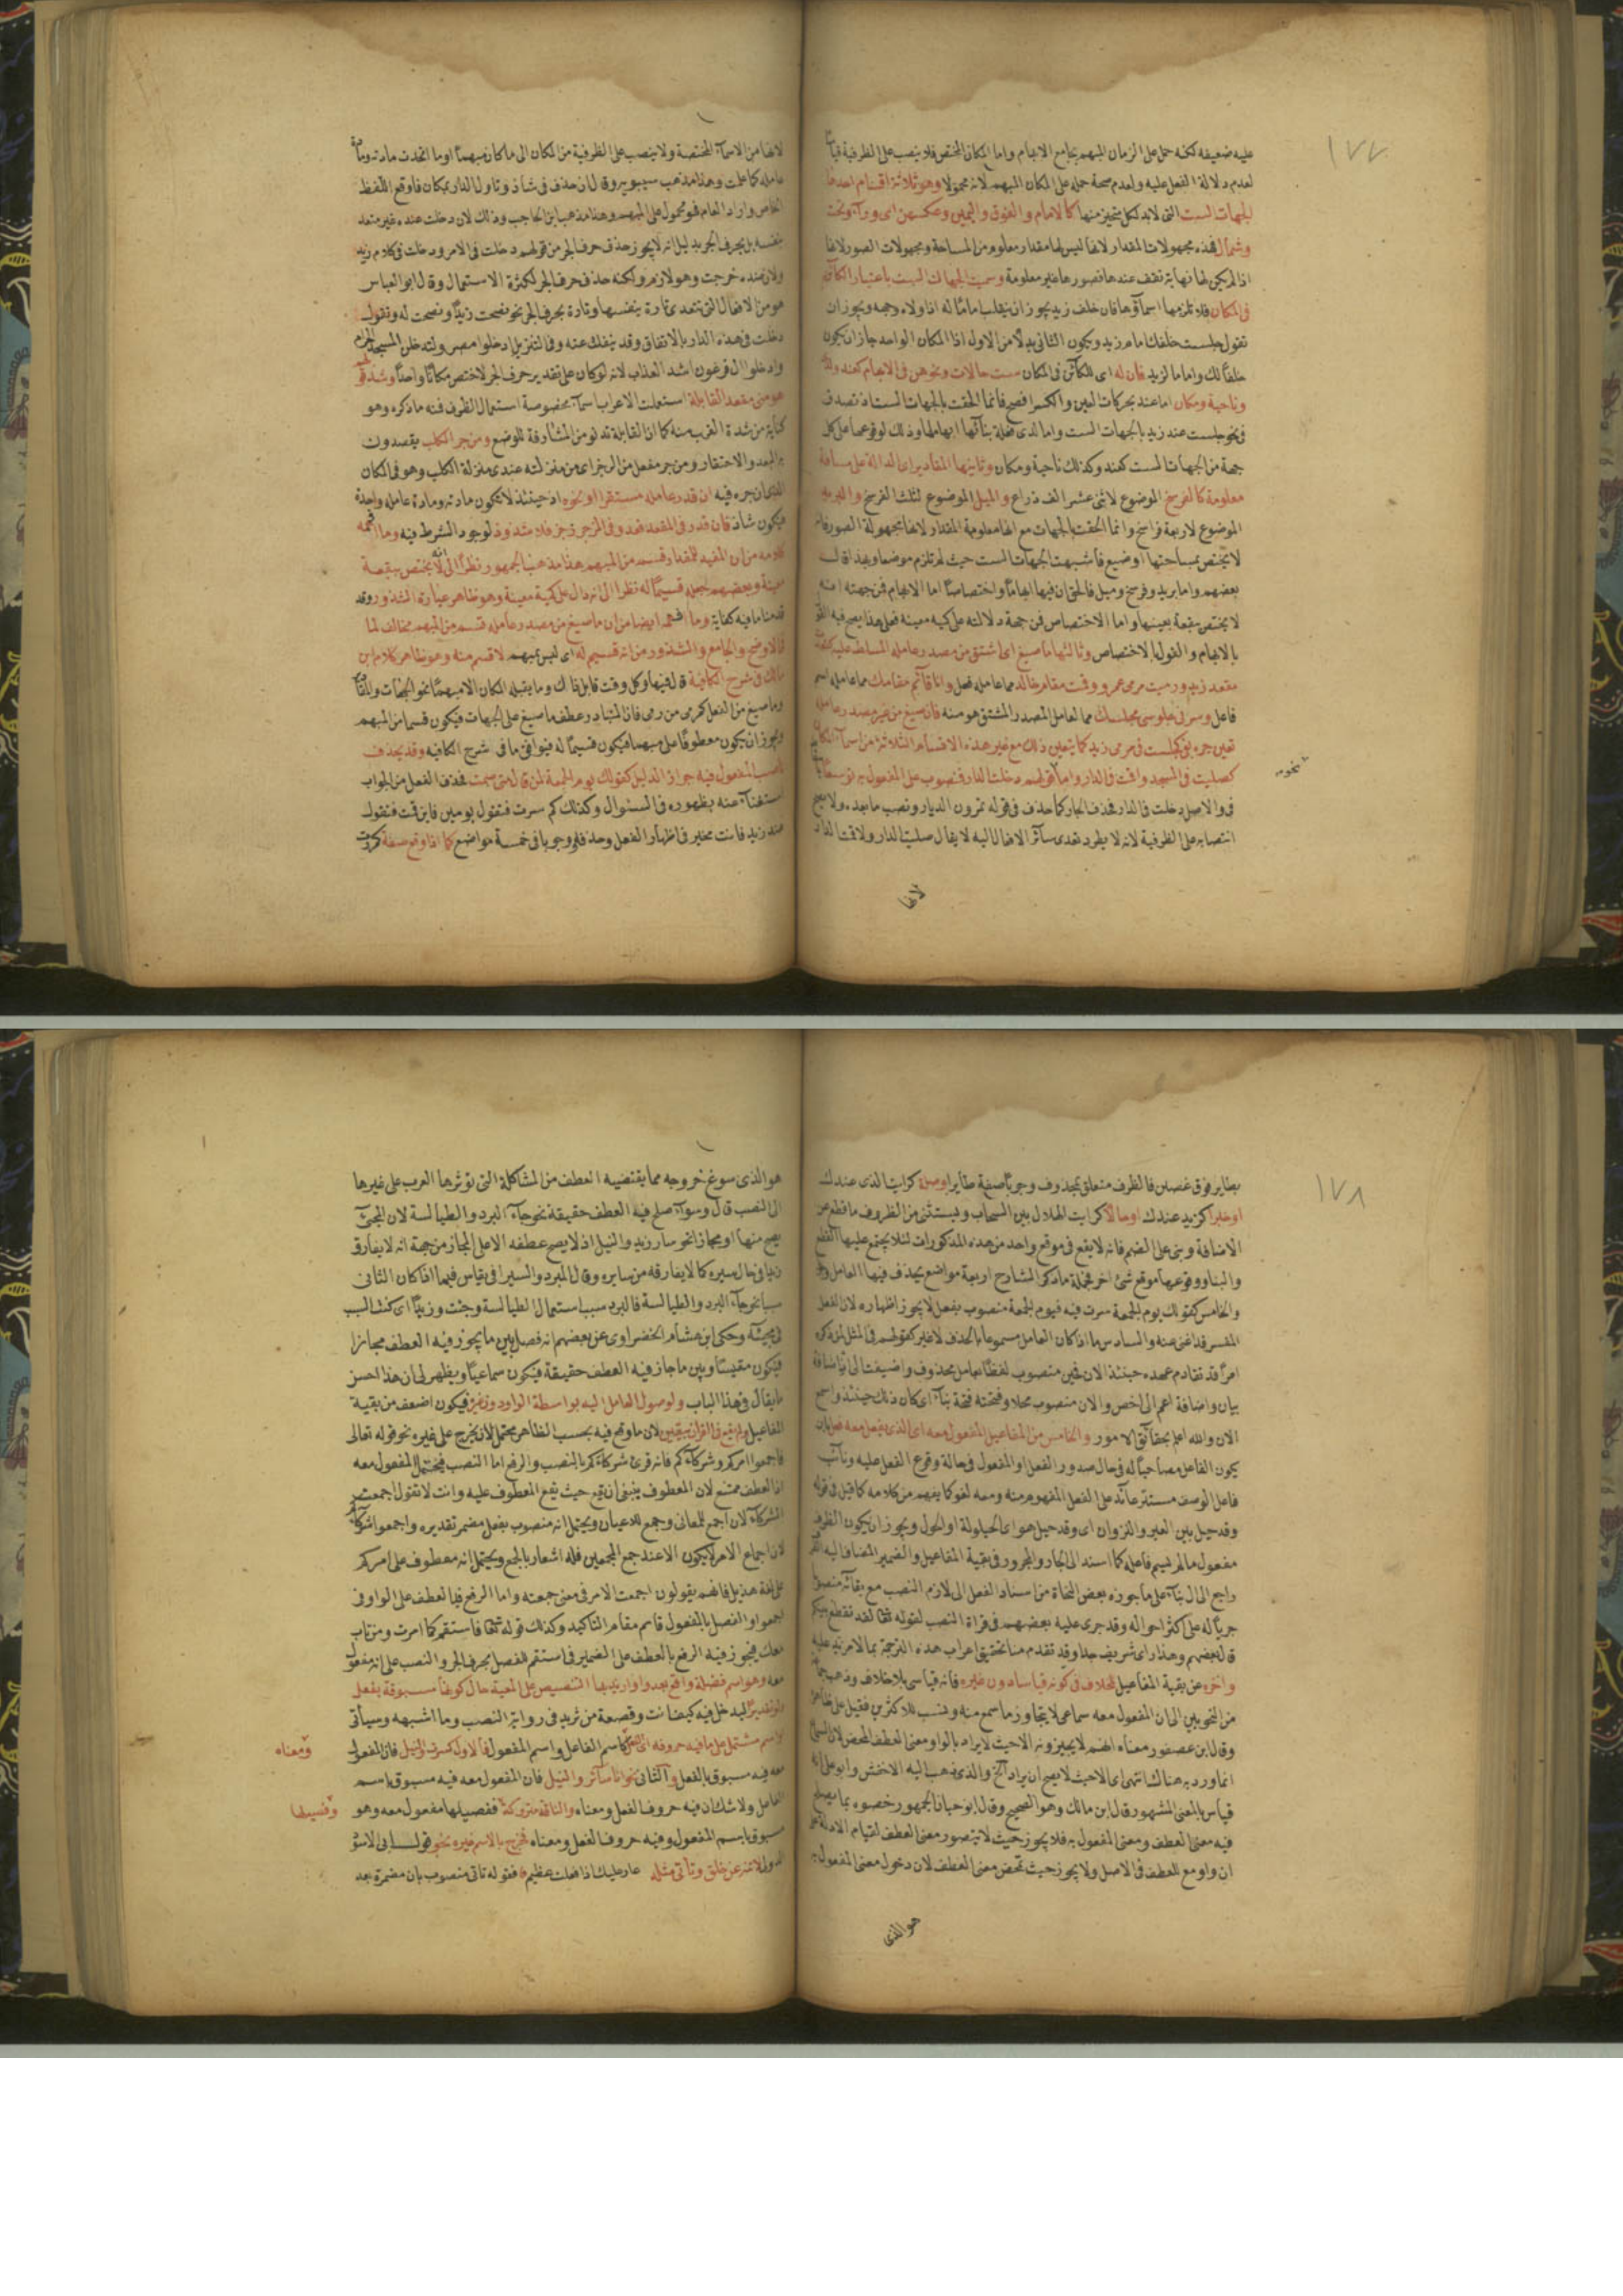 ١٧٧
عليه ضعيفه لكنه حمل على الزمان المبهم بجامع الابهام واما المكان المختص فلا ينصب على الظرفية قياسا
لعدم دلالة الفعل عليه ولعدم صحة حمله على المكان المبهم لانه مجهولا وهو ثلاثة اقسام احدها
الجهات الست التى لابد لكل متحيز منها كالامام والفوق واليمين وعكسهن اى وراء وتحت
وشمال فهذه مجهولات المقدار لانها ليس لها مقدار معلوم من المساحة ومجهولات الصور لانها
اذا لم يكن لها نهاية تقف عندها فصورها غير معلومة وسميت الجهات الست باعتبار الكائن
فى المكان فلا تلزمها اسماؤها فان خلف زيد يجوز ان ينقلب اماما له اذا ولاه وجهه ويجوز ان
تقول جلست خلفك امام زيد ويكون الثانى بدلا من الاول اذا المكان الواحد جاز ان يكون
خلفا لك واماما لزيد فان له اى للكائن فى المكان ست حالات ونحوهن فى الابهام كعند ولدى
وناحية ومكان اما عند بحركات العين والكسر افصح فانما الحقت بالجهات الست اذ تصدق
فى نحو جلست عند زيد بالجهات الست واما لدى فعلة بنائها ابهامها وذلك لوقوعها على كل
جهة من الجهات الست كعند وكذلك ناحية ومكان وثانيها المقادير اى الدالة على مسافة
معلومة كالفرسخ الموضوع لاثنى عشر الف ذراع والميل الموضوع لثلث الفرسخ والبريد
الموضوع لاربعة فراسخ وانما الحقت بالجهات مع انها معلومة المقدار لانها مجهولة الصور فانه
لا يختص بمساحتها اوضيع فاشبهت الجهات الست حيث لم تلزم موضعا وبهذا قال
بعضهم واما بريد وفرسخ وميل فالحق ان فيها ابهاما واختصاصا اما الابهام فمن جهة انه
لا يختص ببقعة بعينها واما الاختصاص فمن جهة دلالته على كمية معينة فعلى هذا يصح فيه القول
بالابهام والقول بالاختصاص وثالثها ما صيغ اى اشتق من مصدر عامله المسلط عليه كقعدت
مقعد زيد ورميت مرمى عمرو وقمت مقام خالد مما عامله فعل وانا قائم مقامك مما عامله اسم
فاعل وسرنى جلوسى مجلسك مما العامل المصدر المشتق هو منه فان صيغ من غير مصدر عامله
تعين جره بفى كجلست فى مرمى زيد كما يتعين ذلك مع غير هذه الاقسام الثلاثة من اسماء المكان
كصليت فى المسجد واقمت فى الدار واما قولهم دخلت الدار فمنصوب على المفعول به توسعا
نحو
فى والاصل دخلت فى الدار فحذف الجار كما حذف فى قوله تمرون الديار ونصب ما بعده ولا يصح
انتصابه على الظرفية لانه لا يطرد تعدى سائر الافعال اليه لا يقال صليت الدار ولا قمت الدار
لانها
لانها من الاسماء المختصة ولا ينصب على الظرفية من المكان الى ما كان مبهما او ما اتحدت مادته ومادة
عامله كما علمت وهذا مذهب سيبويه وقال ان حذف فى شاذ وتاول الدار بمكان فاوقع اللفظ
الخاص واراد العام فهو محمول على المبهم وهذا مذهب ابن الحاجب وذلك لان دخلت عنده غير متعد
بنفسه بل بحرف الجر بدليل انه لا يجوز حذف حرف الجر من قولهم دخلت فى الامر ودخلت فى كلام زيد
ولان ضده خرجت وهو لازم ولكنه حذف حرف الجر لكثرة الاستعمال وقال ابو العباس
هو من الافعال التى تتعدى تارة بنفسها وتارة بحرف الجر نحو نصحت زيدا ونصحت له وتقول
دخلت فى هذه الدار بالاتفاق وقد ينفك عنه وفى التنزيل ادخلوا مصر ولتدخلن المسجد الحرام
وادخلوا ال فرعون اشد العذاب لانه لو كان على تقدير حرف الجر لاختص مكانا واحدا وشذ قولهم
هو منى مقعد القابلة استعملت الاعراب اسماء مخصوصة استعمال الظرف فمنه ما ذكره وهو
كناية من شدة القرب منه كما ان القابلة تدنو من المشارفة للوضع ومزجر الكلب يقصدون
به البعد والاحتقار ومزجر مفعل من الزجر اى من منزلته عندى منزلة الكلب وهو فى المكان
الذى انزجره فيه ان قدر عامله مستقرا او نحوه اذ حينئذ لا يكون مادته ومادة عامله واحدة
فيكون شاذ فان قدر فى المقعد قعد وفى المزجر زجر فلا شذوذ لوجود الشرط فيه وما افهمه
كلامه من ان المفيد للمقدار قسم من المبهم هذا مذهب الجمهور نظرا الى انه لا يختص ببقعة
معينة وبعضهم جعله قسيما له نظرا الى انه دال على كمية معينة وهو ظاهر عبارة الشذور وقد
قدمنا ما فيه كفاية وما افهمه ايضا من ان ما صيغ من مصدر عامله قسم من المبهم مخالف لما
فالاوضح والجامع والشذور من انه قسيم له اى ليس بمبهم لا قسم منه وهو ظاهر كلام ابن
مالك فى شرح الكافية قال فيها وكل وقت قابل ذاك وما يقبله المكان الا مبهما نحو الجهات والمقادير
وما صيغ من الفعل كمرمى من رمى فاذا المتبادر عطف ما صيغ على الجهات فيكون قسما من المبهم
ويجوز ان يكون معطوفا على مبهما فيكون قسيما له فيوافق ما فى شرح الكافية وقد يحذف
ناصب المفعول فيه جوازا لدليل كقولك يوم الجمعة لمن قال متى صمت فحذف الفعل من الجواب
استغناء عنه بظهوره فى السئوال وكذلك كم سرت فتقول يومين فاين قمت فتقول
عند زيد فانت مخير فى اظهار الفعل وحذفه ووجوبا فى خمسة مواضع كما اذا وقع صفة كمررت
١٧٨
بطاير فوق غصن فالظرف متعلق بمحذوف وجوبا صفة طاير او صلة كرايت الذى عندك
او خبرا كزيد عندك او حالا كرايت الهلال بين السحاب ويستثنى من الظروف ما قطع عن
الاضافة وبنى على الضم فانه لا يقع فى موقع واحد من هذه المذكورات لئلا يجتمع عليها القطع
والبنا ووقوعها موقع شئ اخر فجملة ما ذكر الشارح اربعة مواضع يحذف فيها العامل
والخامس كقولك يوم الجمعة سرت فيه فيوم الجمعة منصوب بفعل لا يجوز اظهاره لان الفعل
المفسر قد اغنى عنه والسادس ما اذا كان العامل مسموعا بالحذف لا غير كقولهم فى المثل لمن ذكر
امرا قد تقادم عهده حينئذ الان فحين منصوب لفظا بعامل محذوف واضيفت الى اذ اضافة
بيان واضافة اعم الى اخص والان منصوب محلا وفتحته فتحة بناء اى كان ذلك حينئذ واسمع
الان والله اعلم بحقائق الامور والخامس من المفاعيل المفعول معه اى الذى يفعل معه فعل بان
يكون الفاعل مصاحبا له فى حال صدور الفعل او المفعول فى حالة وقوع الفعل عليه ونائب
فاعل الوصف مستتر عائد على الفعل المفهوم منه ومعه لغو كما يفهم من كلامه كما قيل فى قوله
وقد حيل بين العير والنزوان اى وقد حيل هو اى الحيلولة او الحول ويجوز ان يكون الظرف
مفعول ما لم يسم فاعله كما اسند الى الجار والمجرور فى بقية المفاعيل والضمير المضاف اليه الظرف
راجع الى ال بناء على ما جوزه بعض النحاة من اسناد الفعل الى لازم النصب مع بقائه منصوبا
جريا له على اكثر احواله وقد جرى عليه بعضهم فى قراة النصب لقوله تعالى لقد تقطع بينكم
قال بعضهم وهذا راى شريف جدا وقد تقدم منا تحقيق اعراب هذه الترجمة بما لا مزيد عليه
واخره عن بقية المفاعيل للخلاف فى كونه قياسا دون غيره فانه قياسى بلا خلاف وذهب جماعة
من النحويين الى ان المفعول معه سماعى لا يتجاوز ما سمع منه ونسب للاكثرين فقيل على ظاهره
وقال ابن عصفور معناه انهم لا يجيزونه الا حيث لا يراد بالواو معنى العطف المحض لان السماع
انما ورد به هناك انتهى اى الا حيث لا يصح ان يراد الخ والذى ذهب اليه الاخفش وابو على انه
قياس بالمعنى المشهور قال ابن مالك وهو الصحيح وقال ابو حيان الجمهور خصوه بما يصلح
فيه معنى العطف ومعنى المفعول به فلا يجوز حيث لا يتصور معنى العطف لقيام الادلة على
ان واو مع للعطف فى الاصل ولا يجوز حيث تمحض معنى العطف لان دخول معنى المفعول به
هو الذى
هو الذى سوغ خروجه مما يقتضيه العطف من المشاكلة التى تؤثرها العرب على غيرها
الى النصب قال وسواء صلح فيه العطف حقيقة نحو جاء البرد والطيالسة لان المجئ
يصح منها او مجازا نحو سار زيد والنيل اذ لا يصح عطفه الا على المجاز من جهة انه لا يفارق
زيدا فى حال سيره كما لا يفارقه من سايره وقال المبرد والسيرافى يقاس فيما اذا كان الثانى
سببا نحو جاء البرد والطيالسة فالبرد سبب استعمال الطيالسة وجئت وزيدا اى كنت السبب
فى مجيئه وحكى ابن هشام الخضراوى عن بعضهم انه فصل بين ما يجوز فيه العطف مجازا
فيكون مقيسا وبين ما جاز فيه العطف حقيقة فيكون سماعيا ويظهر لى ان هذا احسن
ما يقال فى هذا الباب ولوصول العامل اليه بواسطة الواو دون غيره فيكون اضعف من بقية
المفاعيل ولم يقع فى القران بيقين لان ما وقع فيه بحسب الظاهر محتمل لان يخرج على غيره نحو قوله تعالى
فاجمعوا امركم وشركاءكم فانه قرئ شركاءكم بالنصب والرفع اما النصب فيحتمل المفعول معه
اذ العطف ممتنع لان المعطوف ينبغى ان يقع حيث يقع المعطوف عليه وانت لا تقول اجمعت
الشركاء لان اجمع للمعانى وجمع للاعيان ويحتمل انه منصوب بفعل مضمر تقديره واجمعوا شركاءكم
لان اجماع الامر لا يكون الا عند جمع المجمعين فله اشعار بالجمع ويحتمل انه معطوف على امركم
على لغة هذيل فانهم يقولون اجمعت الامر فى معنى جمعته واما الرفع فبالعطف على الواو فى
اجمعوا والفصل بالمفعول قام مقام التاكيد وكذلك قوله تعالى فاستقم كما امرت ومن تاب
معك فيجوز فيه الرفع بالعطف على الضمير فى استقم للفصل بحرف الجر والنصب على انه مفعول
معه وهو اسم فضلة واقع بعد واو اريد بها التنصيص على المعية حال كونها مسبوقة بفعل
ولو تقديرا ليدخل فيه كيف انت وقصعة من ثريد فى رواية النصب وما اشبهه وسياتى
او اسم مشتمل على ما فيه حروفه اى الفعل كاسم الفاعل واسم المفعول فالاول كسرت والنيل فان المفعول
ومعناه
معه فيه مسبوق بالفعل والثانى نحو انا سائر والنيل فان المفعول معه فيه مسبوق باسم
الفاعل ولا شك ان فيه حروف الفعل ومعناه والناقة متروكة ففصيلها مفعول معه وهو
وفصيلها
مسبوق باسم المفعول وفيه حروف الفعل ومعناه فخرج بالاسم غيره نحو قول ابى الاسود
الدولى لا تنه عن خلق وتأتى مثله عار عليك اذا فعلت عظيم فقوله تاتى منصوب بان مضمرة بعد